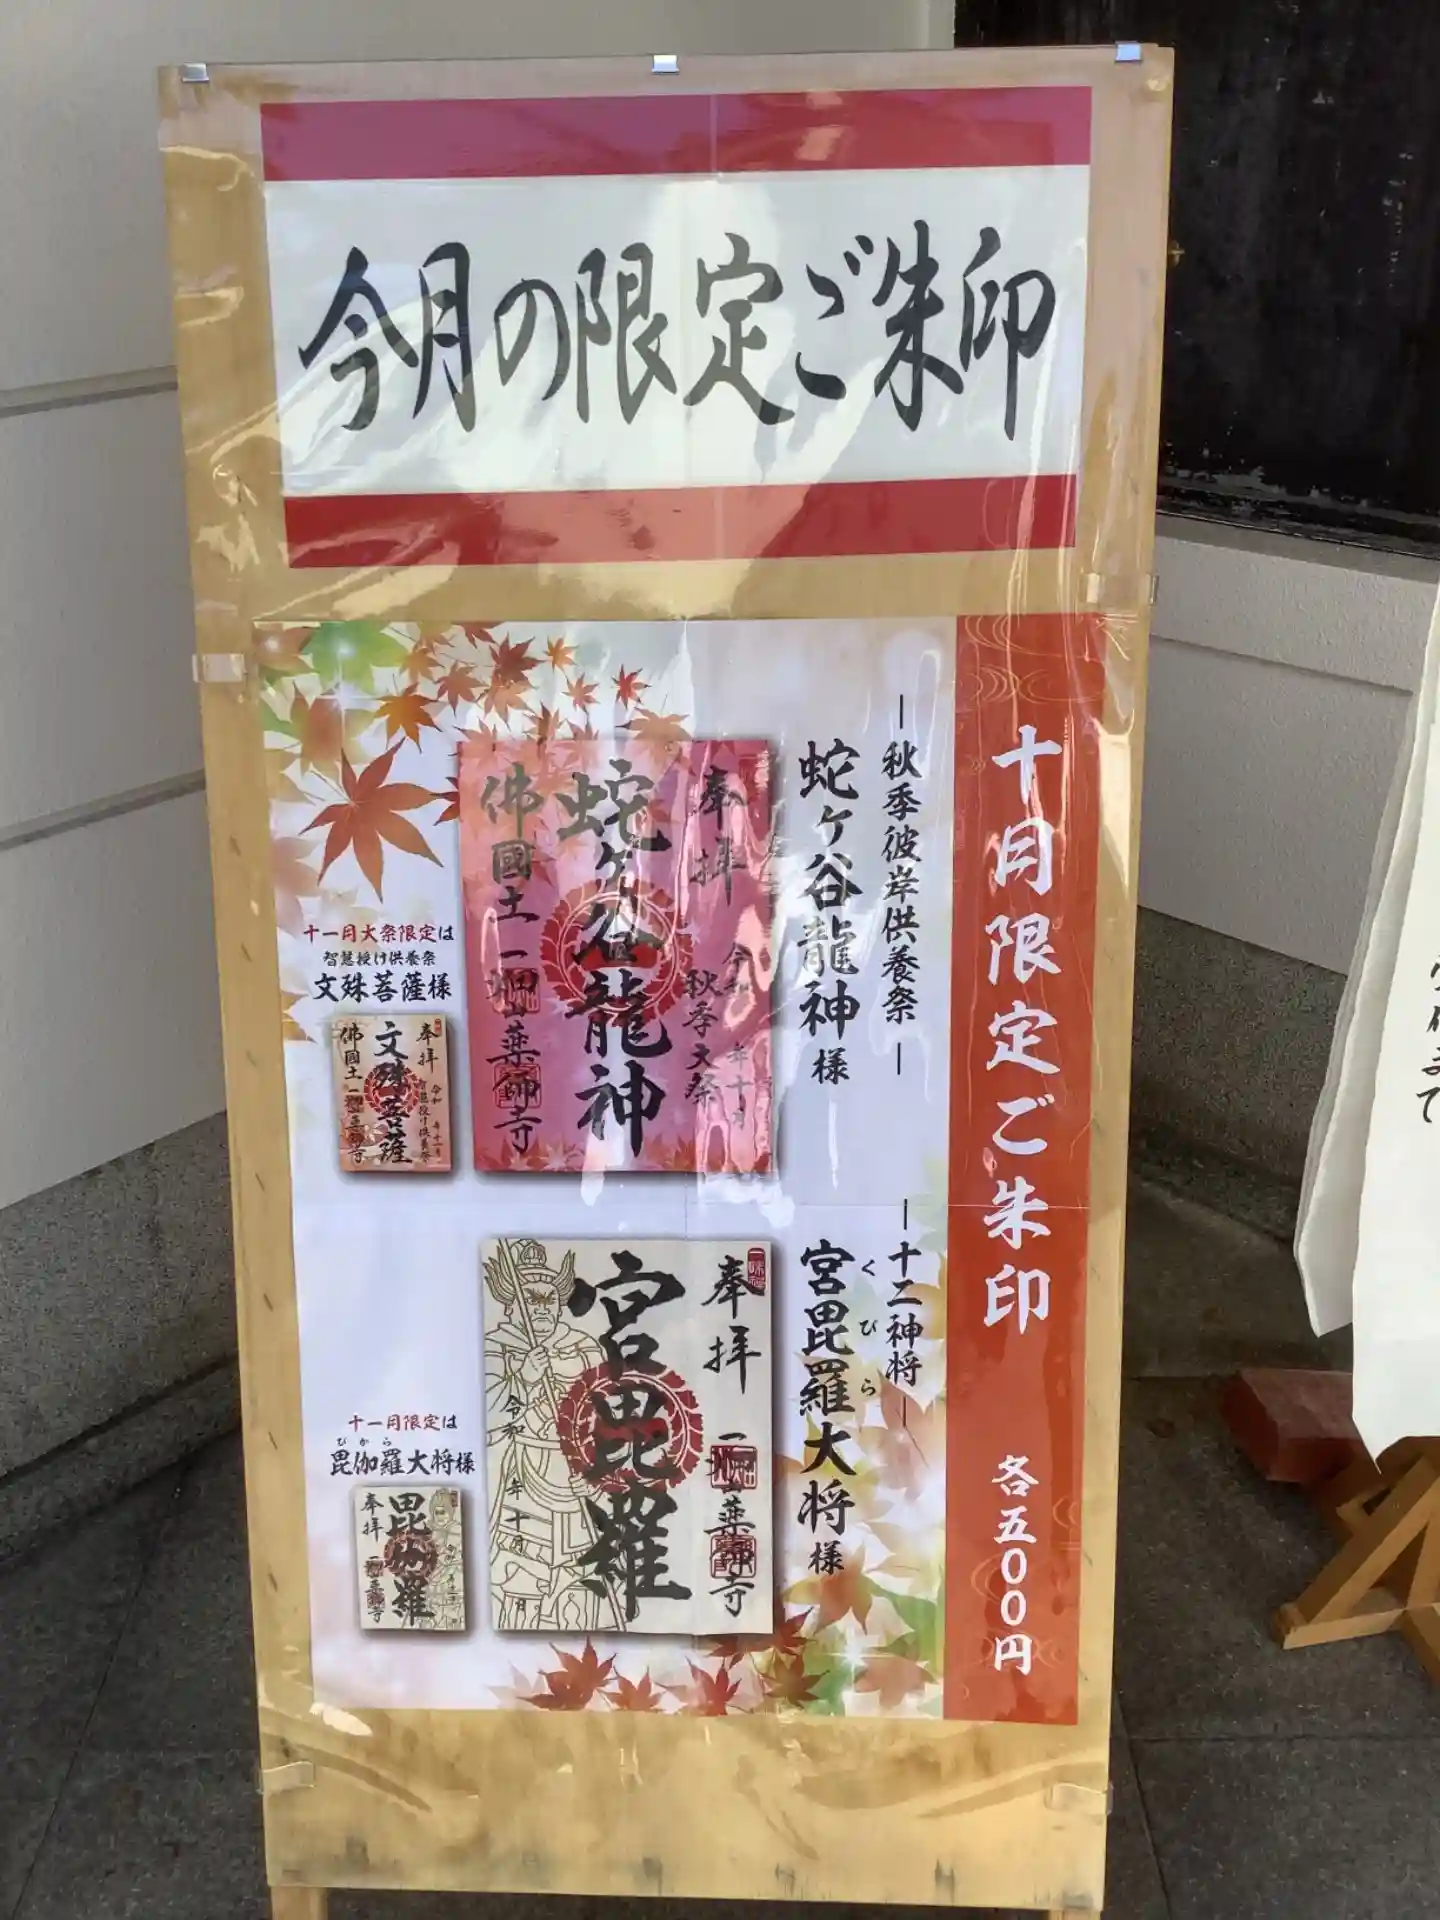 今月の限定ご朱印
十月限定ご朱印
各五〇〇円
―秋季彼岸供養祭―
蛇ヶ谷龍神様
奉拝
令和 年十月
秋季大祭
蛇ヶ谷龍神
佛國土 一畑山薬師寺
十一月大祭限定は
智慧授け供養祭
文殊菩薩様
奉拝
令和 年十一月
智慧授け供養祭
文殊菩薩
佛國土 一畑山薬師寺
―十二神将―
宮毘羅大将様
くびら
奉拝 一畑山薬師寺
宮毘羅
令和 年十月 日
十一月限定は
びから
毘伽羅大将様
毘伽羅
奉拝 一畑山薬師寺